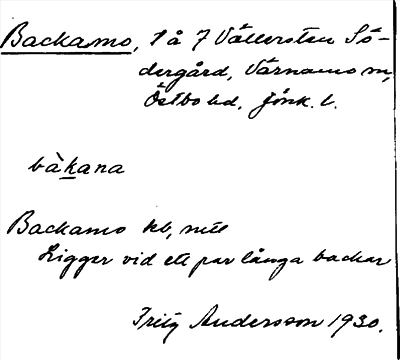 Backamo, 1 å 7 Vällersten Sö-
dergård, Värnamo sn,
Östbo hd. Jönk. l.
bàkana
Backamo hb, nctt
Ligger vid ett par långa backar
Fritz Andersson 1930.